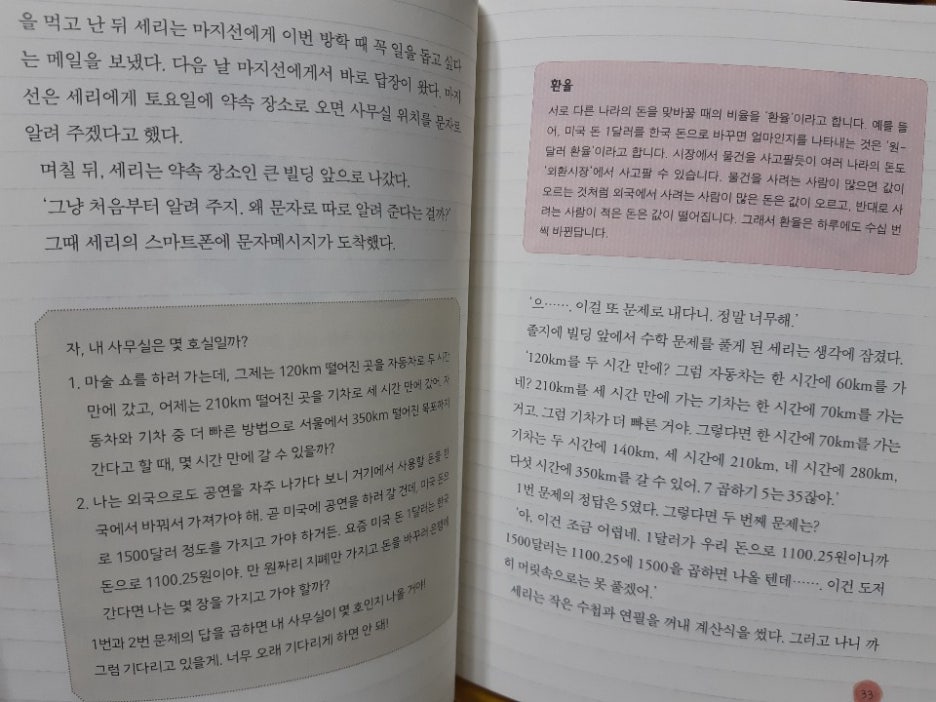 을 먹고 난 뒤 세리는 마지선에게 이번 방학 때 꼭 일을 돕고 싶다
는 메일을 보냈다. 다음 날 마지선에게서 바로 답장이 왔다. 마지
선은 세리에게 토요일에 약속 장소로 오면 사무실 위치를 문자로
알려 주겠다고 했다.
며칠 뒤, 세리는 약속 장소인 큰 빌딩 앞으로 나갔다.
'그냥 처음부터 알려 주지. 왜 문자로 따로 알려 준다는 걸까?'
그때 세리의 스마트폰에 문자메시지가 도착했다.
자, 내 사무실은 몇 호실일까?
1. 마술 쇼를 하러 가는데, 그제는 120km 떨어진 곳을 자동차로 두 시간
만에 갔고, 어제는 210km 떨어진 곳을 기차로 세 시간 만에 갔어. 자
동차와 기차 중 더 빠른 방법으로 서울에서 350km 떨어진 목포까지
간다고 할 때, 몇 시간 만에 갈 수 있을까?
2. 나는 외국으로도 공연을 자주 나가다 보니 거기에서 사용할 돈을 한
국에서 바꿔서 가져가야 해. 곧 미국에 공연을 하러 갈 건데, 미국 돈으
로 1500달러 정도를 가지고 가야 하거든. 요즘 미국 돈 1달러는 한국
돈으로 1100.25원이야. 만 원짜리 지폐만 가지고 돈을 바꾸러 은행에
간다면 나는 몇 장을 가지고 가야 할까?
1번과 2번 문제의 답을 곱하면 내 사무실이 몇 호인지 나올 거야!
그럼 기다리고 있을게. 너무 오래 기다리게 하면 안 돼!
환율
서로 다른 나라의 돈을 맞바꿀 때의 비율을 '환율'이라고 합니다. 예를 들
어, 미국 돈 1달러를 한국 돈으로 바꾸면 얼마인지를 나타내는 것은 '원-
달러 환율'이라고 합니다. 시장에서 물건을 사고팔듯이 여러 나라의 돈도
'외환시장'에서 사고팔 수 있습니다. 물건을 사려는 사람이 많으면 값이
오르는 것처럼 외국에서 사려는 사람이 많은 돈은 값이 오르고, 반대로 사
려는 사람이 적은 돈은 값이 떨어집니다. 그래서 환율은 하루에도 수십 번
씩 바뀐답니다.
'으……. 이걸 또 문제로 내다니. 정말 너무해.'
졸지에 빌딩 앞에서 수학 문제를 풀게 된 세리는 생각에 잠겼다.
'120km를 두 시간 만에? 그럼 자동차는 한 시간에 60km를 가
네? 210km를 세 시간 만에 가는 기차는 한 시간에 70km를 가는
거고. 그럼 기차가 더 빠른 거야. 그렇다면 한 시간에 70km를 가는
기차는 두 시간에 140km, 세 시간에 210km, 네 시간에 280km,
다섯 시간에 350km를 갈 수 있어. 7 곱하기 5는 35잖아.'
1번 문제의 정답은 5였다. 그렇다면 두 번째 문제는?
'아, 이건 조금 어렵네. 1달러가 우리 돈으로 1100.25원이니까
1500달러는 1100.25에 1500을 곱하면 나올 텐데……. 이건 도저
히 머릿속으로는 못 풀겠어.'
세리는 작은 수첩과 연필을 꺼내 계산식을 썼다. 그러고 나니 까
33